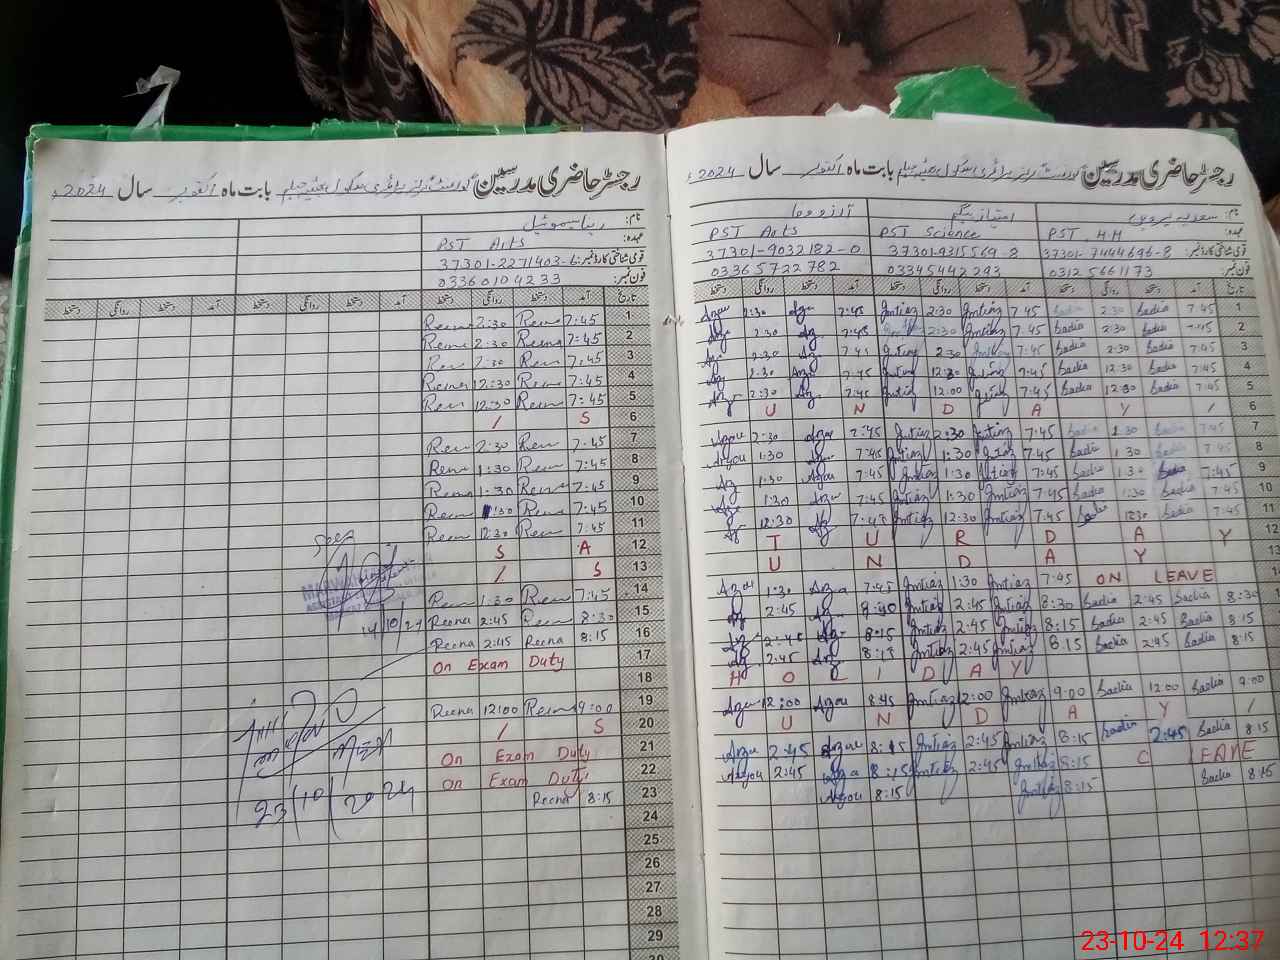 رجسٹر حاضری مدرسین گورنمنٹ گرلز پرائمری سکول بابت ماہ اکتوبر سال 2024ء
نام:
عہدہ: PST Arts
قومی شناختی کارڈ نمبر: 37301-2271403-6
فون نمبر: 03360104233
تاریخ آمد دستخط روانگی دستخط آمد دستخط روانگی دستخط آمد دستخط روانگی دستخط
1 7:45 Reena 2:30 Reena
2 7:45 Reena 2:30 Reena
3 7:45 Reena 2:30 Reena
4 7:45 Reena 12:30 Reena
5 7:45 Reena 12:30 Reena
6 S /
7 7:45 Reena 2:30 Reena
8 7:45 Reena 1:30 Reena
9 7:45 Reena 1:30 Reena
10 7:45 Reena 1:30 Reena
11 7:45 Reena 12:30 Reena
12 A S
13 S /
14 7:45 Reena 1:30 Reena
15 8:30 Reena 2:45 Reena
16 8:15 Reena 2:45 Reena
17 On Exam Duty
18
19 9:00 Reena 12:00 Reena
20 S /
21 On Exam Duty
22 On Exam Duty
23 8:15 Reena
24
25
26
27
28
29
14/10/24
23/10/2024
رجسٹر حاضری مدرسین گورنمنٹ گرلز پرائمری سکول بابت ماہ اکتوبر سال 2024ء
نام: سعدیہ پروین امتیاز بیگم
عہدہ: PST. H.H PST Science PST Arts
قومی شناختی کارڈ نمبر: 37301-7444696-8 37301-9315569-8 37301-9032182-0
فون نمبر: 03125661173 03345442293 03365722782
تاریخ آمد دستخط روانگی دستخط آمد دستخط روانگی دستخط آمد دستخط روانگی دستخط
1 7:45 Sadia 2:30 Sadia 7:45 Imtiaz 2:30 Imtiaz 7:45 2:30
2 7:45 Sadia 2:30 Sadia 7:45 Imtiaz 2:30 7:45 2:30
3 7:45 Sadia 2:30 Sadia 7:45 Imtiaz 2:30 Imtiaz 7:45 2:30
4 7:45 Sadia 12:30 Sadia 7:45 Imtiaz 12:30 Imtiaz 7:45 2:30
5 7:45 Sadia 12:30 Sadia 7:45 Imtiaz 12:00 Imtiaz 7:45 2:30
6 U N D A Y /
7 7:45 Sadia 1:30 Sadia 7:45 Imtiaz 2:30 Imtiaz 7:45 2:30
8 7:45 Sadia 1:30 Sadia 7:45 Imtiaz 1:30 Imtiaz 7:45 1:30
9 7:45 Sadia 1:30 Sadia 7:45 Imtiaz 1:30 Imtiaz 7:45 1:30
10 7:45 Sadia 1:30 Sadia 7:45 Imtiaz 1:30 Imtiaz 7:45 1:30
11 7:45 Sadia 12:30 Sadia 7:45 Imtiaz 12:30 Imtiaz 7:45 12:30
12 T U R D A Y
13 U N D A Y
14 ON LEAVE 7:45 Imtiaz 1:30 Imtiaz 7:45 1:30
8:30 Sadia 2:45 Sadia 8:30 Imtiaz 2:45 Imtiaz 2:45
8:15 Sadia 2:45 Sadia 8:15 Imtiaz 2:45 Imtiaz 8:15 2:45
8:15 Sadia 2:45 Sadia 8:15 Imtiaz 2:45 Imtiaz 8:15 2:45
H O L I D A Y
9:00 Sadia 12:00 Sadia 9:00 Imtiaz 12:00 Imtiaz 8:45 12:00
U N D A Y /
8:15 Sadia 2:45 Sadia 8:15 Imtiaz 2:45 Imtiaz 8:15 2:45
C LEAVE 8:15 Imtiaz 2:45 Imtiaz 8:15 2:45
8:15 Sadia 8:15 Imtiaz 8:15
23-10-24 12:37